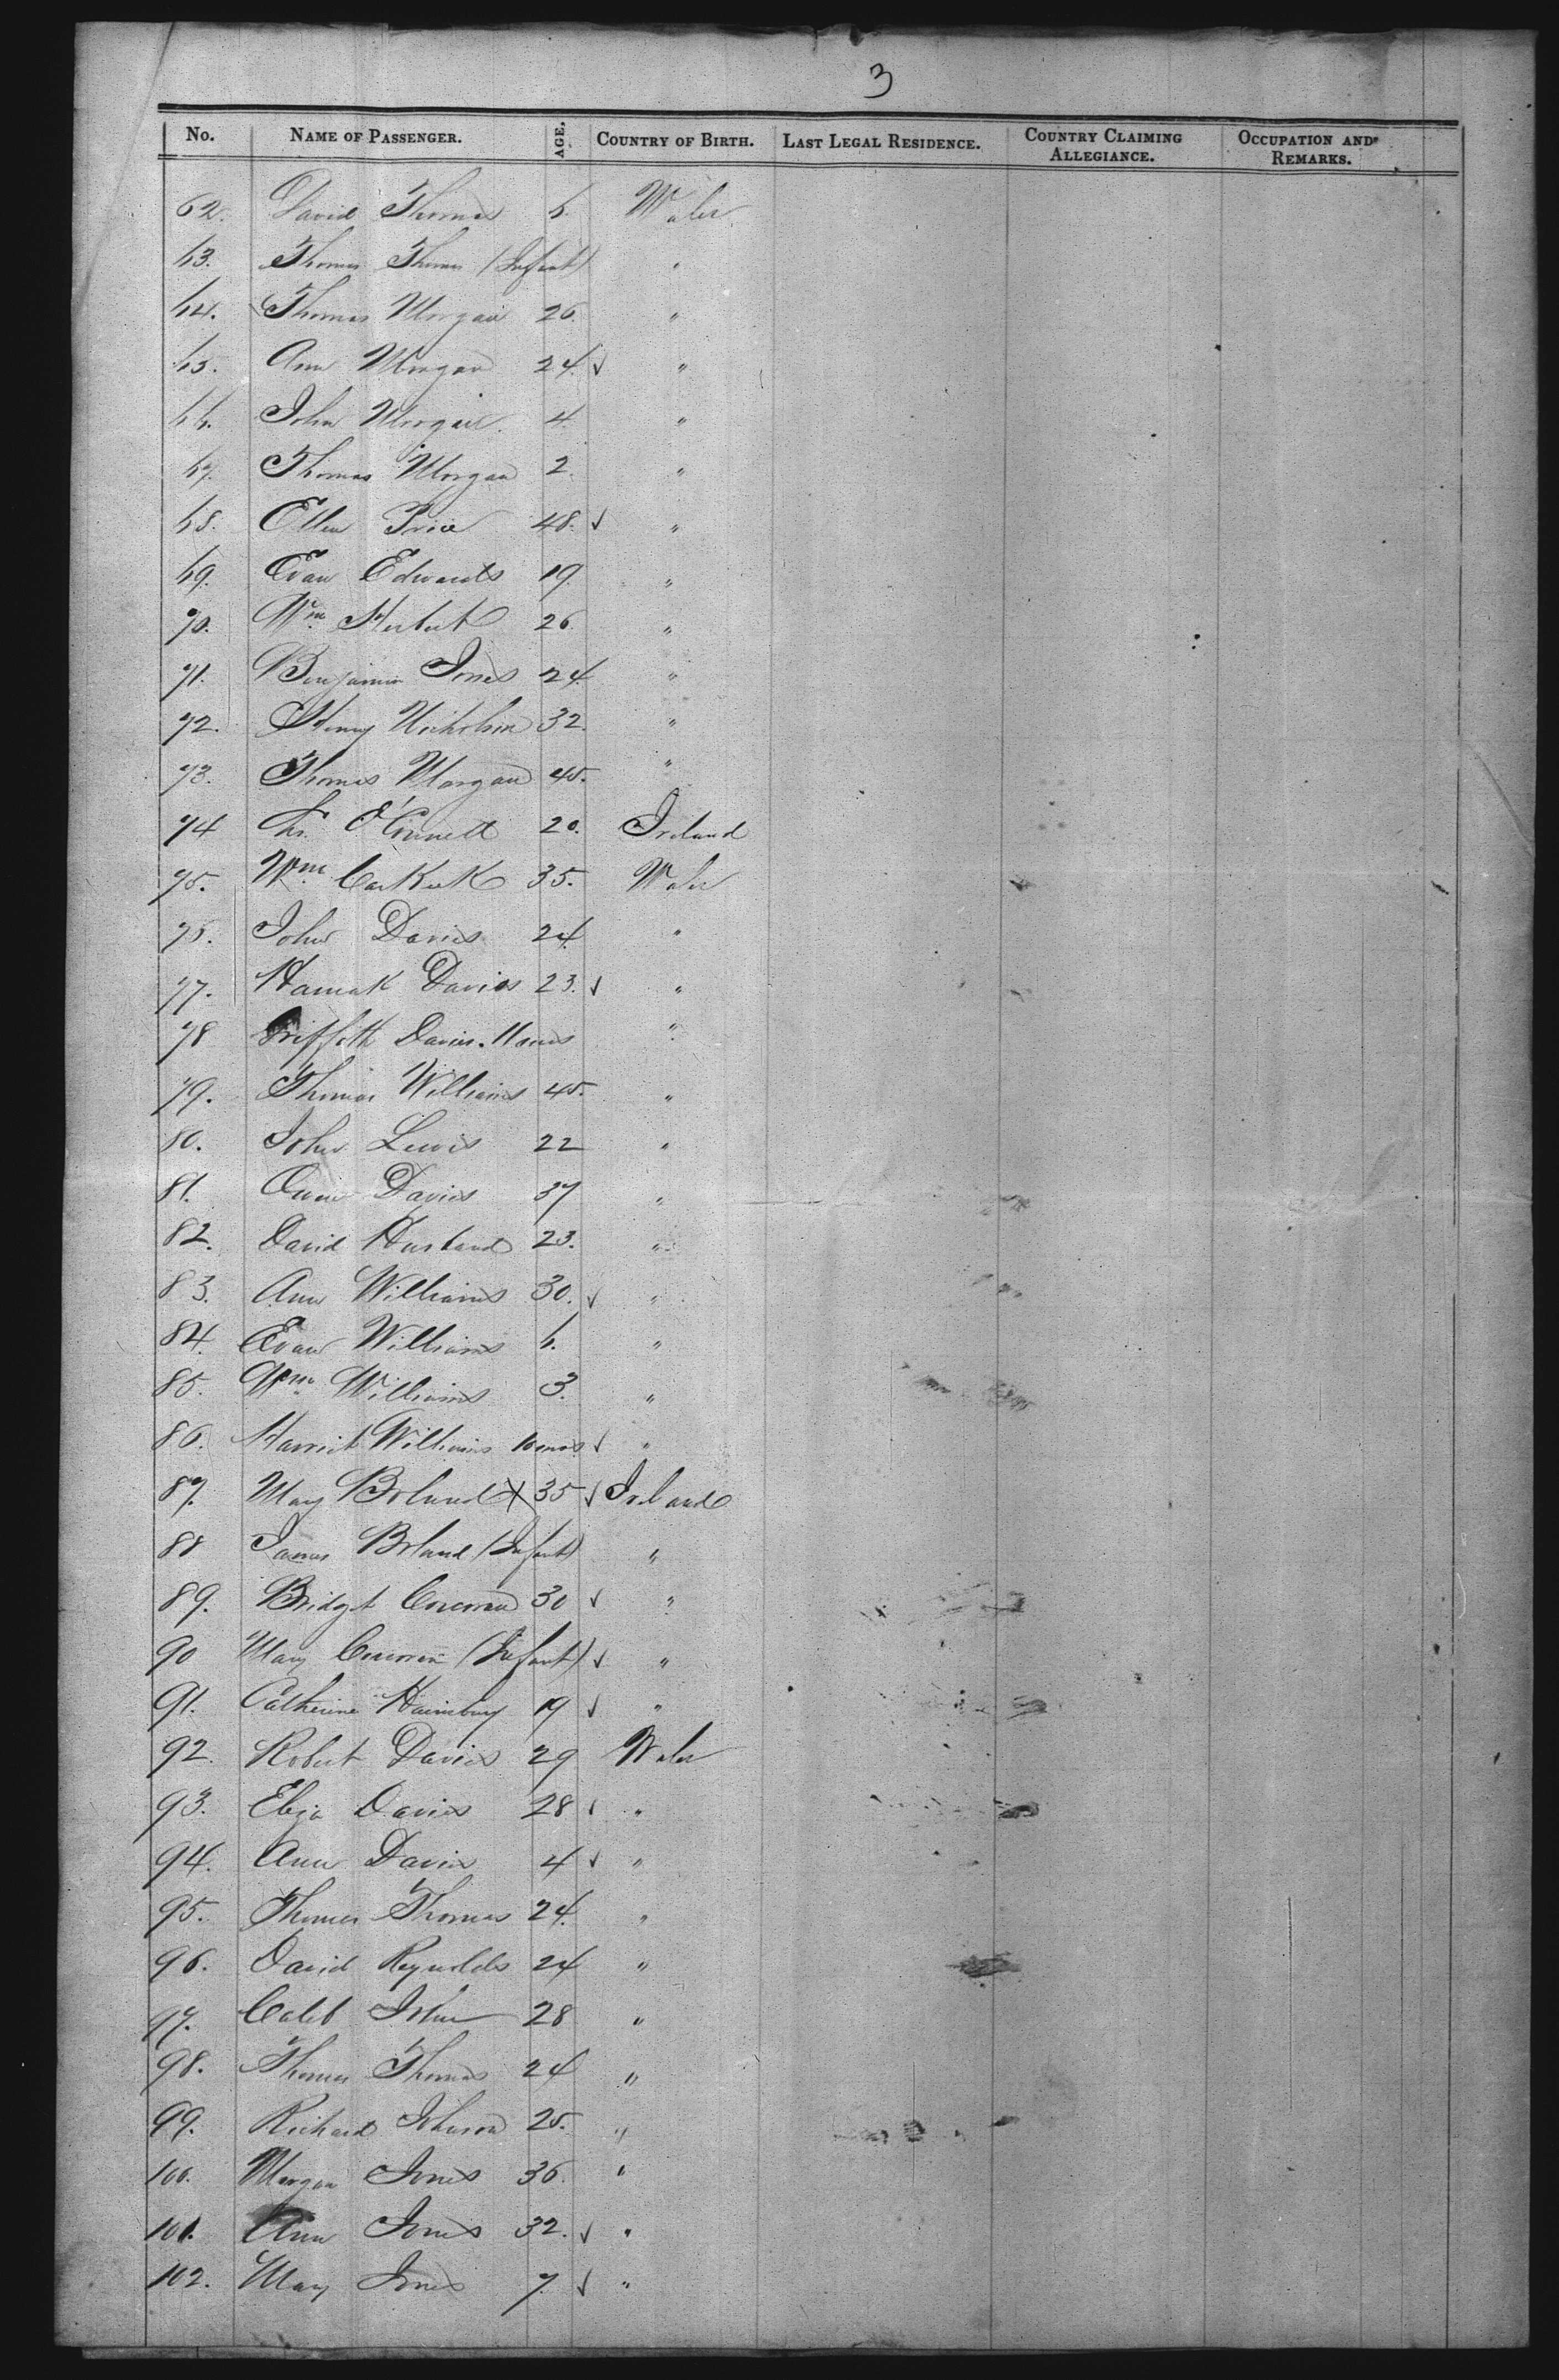 3
No. NAME OF PASSENGER. AGE. COUNTRY OF BIRTH. LAST LEGAL RESIDENCE. COUNTRY CLAIMING ALLEGIANCE. OCCUPATION AND REMARKS.
62. David Thomas 6. Wales
63. Thomas Thomas (Infant) "
64. Thomas Morgan 26. "
65. Ann Morgan 24. ✓ "
66. John Morgan. 4. "
67. Thomas Morgan 2. "
68. Ellen Price 48. ✓ "
69. Evan Edwards 19. "
70. Wm Herbert 26. "
71. Benjamin Jones 24. "
72. Henry Nicholson 32. "
73. Thomas Morgan 45. "
74 O'Connell 20. Ireland
75. Wm 35. Wales
76. John Davies 24. "
77. Hannah Davies 23. ✓ "
78 Griffith Davies. 11 mos "
79. Thomas Williams 45. "
80. John Lewis 22 "
81. Owen Davies 37 "
82. David Husband 23. "
83. Ann Williams 30. ✓ "
84. Evan Williams 6. "
85. Wm Williams 3. "
86. Harriet Williams 10 mos ✓ "
87. Mary Boland X 35 ✓ Ireland
88 James Boland (Infant) "
89. Bridget Corcoran 30 ✓ "
90 Mary Corcoran (Infant) ✓ "
91. Catherine 19 ✓ "
92. Robert Davies 29 Wales
93. Eliza Davies 28 ✓ "
94. Ann Davies 4 ✓ "
95. Thomas Thomas 24. "
96. David Reynolds 24 "
97. Caleb John 28 "
98. Thomas Thomas 24 "
99. Richard Johnson 25. "
100. Morgan Jones 36. "
101. Ann Jones 32. ✓ "
102. Mary Jones 7. ✓ "